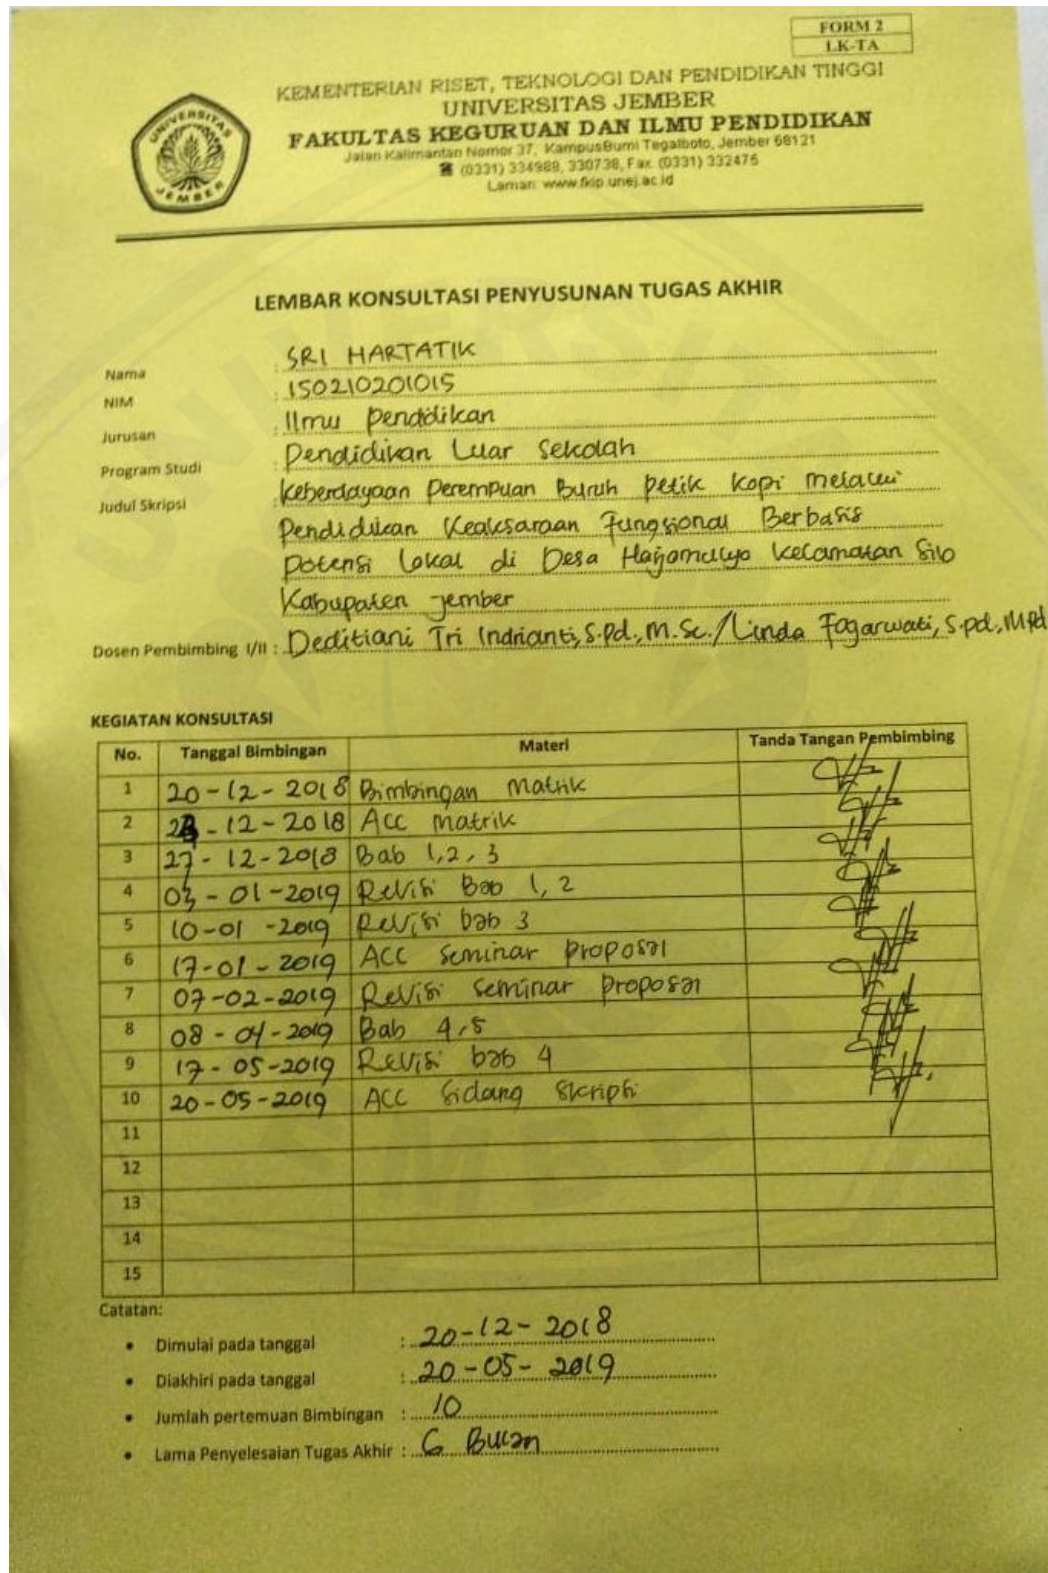 FORM 2
LK-TA
KEMENTERIAN RISET, TEKNOLOGI DAN PENDIDIKAN TINGGI
UNIVERSITAS JEMBER
FAKULTAS KEGURUAN DAN ILMU PENDIDIKAN
Jalan Kalimantan Nomor 37, KampusBumi Tegalboto, Jember 68121
☎ (0331) 334988, 330738, Fax. (0331) 332475
Laman: www.fkip.unej.ac.id
UNIVERSITAS
JEMBER
LEMBAR KONSULTASI PENYUSUNAN TUGAS AKHIR
Nama : SRI HARTATIK
NIM : 150210201015
Jurusan : Ilmu Pendidikan
Program Studi : Pendidikan Luar Sekolah
Judul Skripsi : Keberdayaan Perempuan Buruh Petik Kopi melalui
Pendidikan Keaksaraan Fungsional Berbasis
Potensi Lokal di Desa Harjomulyo Kecamatan Silo
Kabupaten Jember
Dosen Pembimbing I/II : Deditiani Tri Indrianti, S.Pd., M.Sc. / Linda Fajarwati, S.pd., M.Pd
KEGIATAN KONSULTASI
No. Tanggal Bimbingan Materi Tanda Tangan Pembimbing
1 20-12-2018 Bimbingan Matrik
2 -12-2018 Acc Matrik
3 27-12-2018 Bab 1, 2, 3
4 03-01-2019 Revisi Bab 1, 2
5 10-01-2019 Revisi bab 3
6 17-01-2019 ACC Seminar Proposal
7 07-02-2019 Revisi Seminar Proposal
8 08-04-2019 Bab 4, 5
9 17-05-2019 Revisi bab 4
10 20-05-2019 ACC Sidang Skripsi
11
12
13
14
15
Catatan:
• Dimulai pada tanggal : 20-12-2018
• Diakhiri pada tanggal : 20-05-2019
• Jumlah pertemuan Bimbingan : 10
• Lama Penyelesaian Tugas Akhir : 6 Bulan